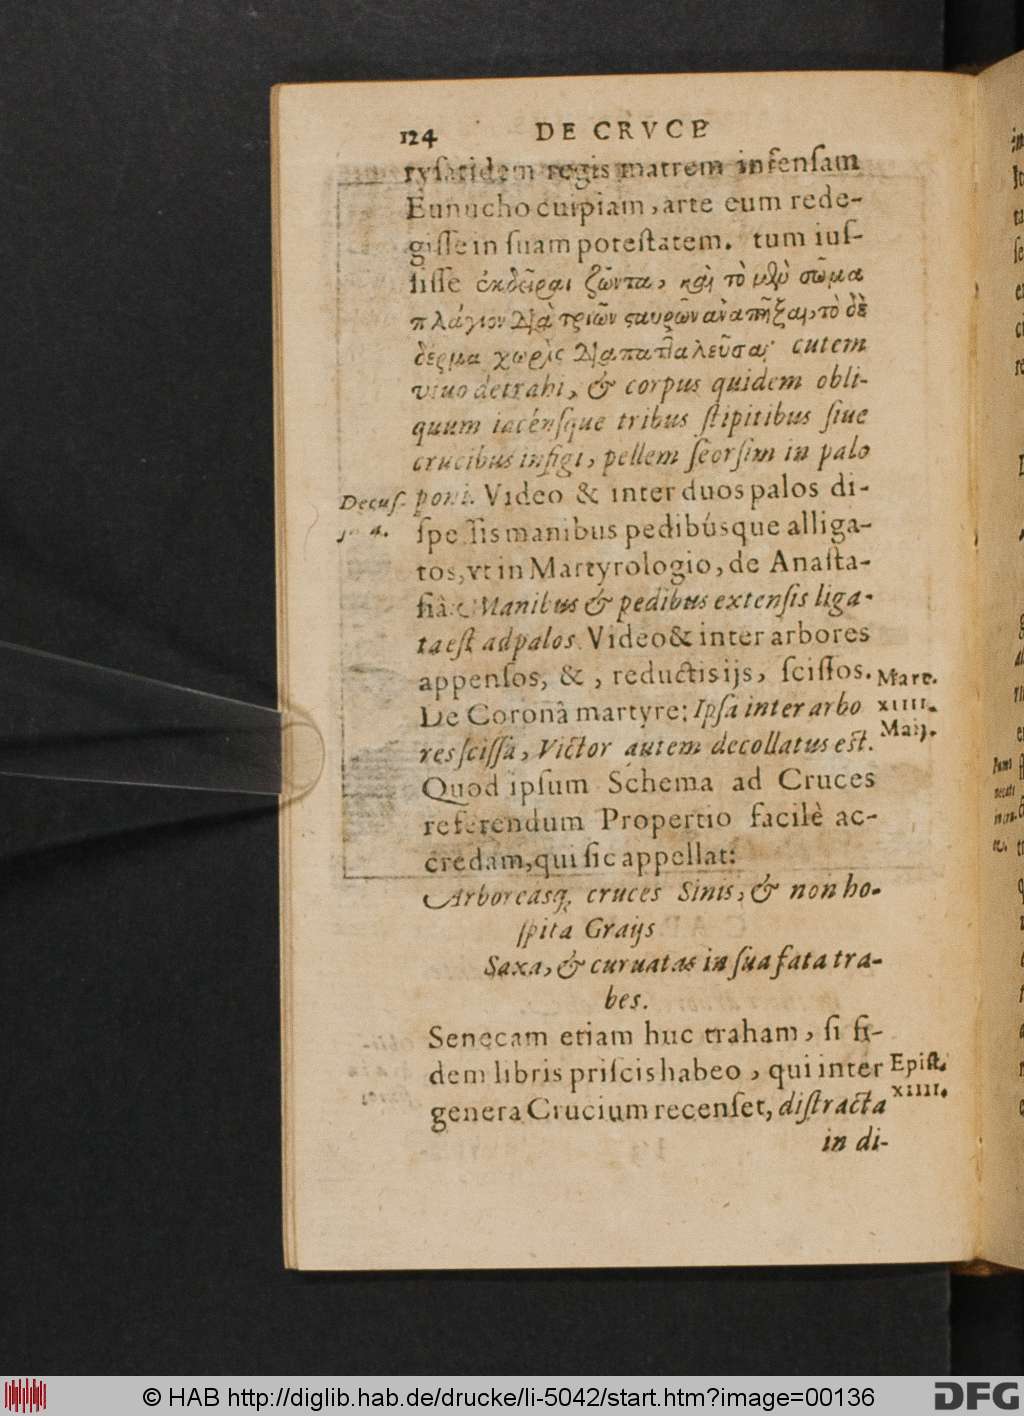 124 DE CRVCE
rysatidem regis matrem infensam
Eunucho cuipiam, arte eum rede-
gisse in suam potestatem. tum ius-
sisse ἐκδεῖραι ζῶντα, καὶ τὸ μὲν σῶμα
πλάγιον διὰ τριῶν σαυρῶν ἀναπῆξαι, τὸ δὲ
δέρμα χωρὶς διαπατταλεῦσαι· cutem
viuo detrahi, & corpus quidem obli-
quum iacénsque tribus stipitibus siue
crucibus infigi, pellem seorsim in palo
Decus- poni. Video & inter duos palos di-
4. spessis manibus pedibúsque alliga-
tos, vt in Martyrologio, de Anasta-
siâ: Manibus & pedibus extensis liga-
ta est ad palos. Video & inter arbores
appensos, &, reductis ijs, scissos. Mart.
De Coronâ martyre: Ipsa inter arbo xIIII.
res scissa, Victor autem decollatus est. Maij.
Quod ipsum Schema ad Cruces
referendum Propertio facilè ac-
credam, qui sic appellat:
Arboreasq; cruces Sinis, & non ho-
spita Graijs
Saxa, & curuatas in sua fata tra-
bes.
Senecam etiam huc traham, si fi-
dem libris priscis habeo, qui inter Epist.
genera Crucium recenset, distracta xIIII.
in di-
© HAB http://diglib.hab.de/drucke/li-5042/start.htm?image=00136 DFG